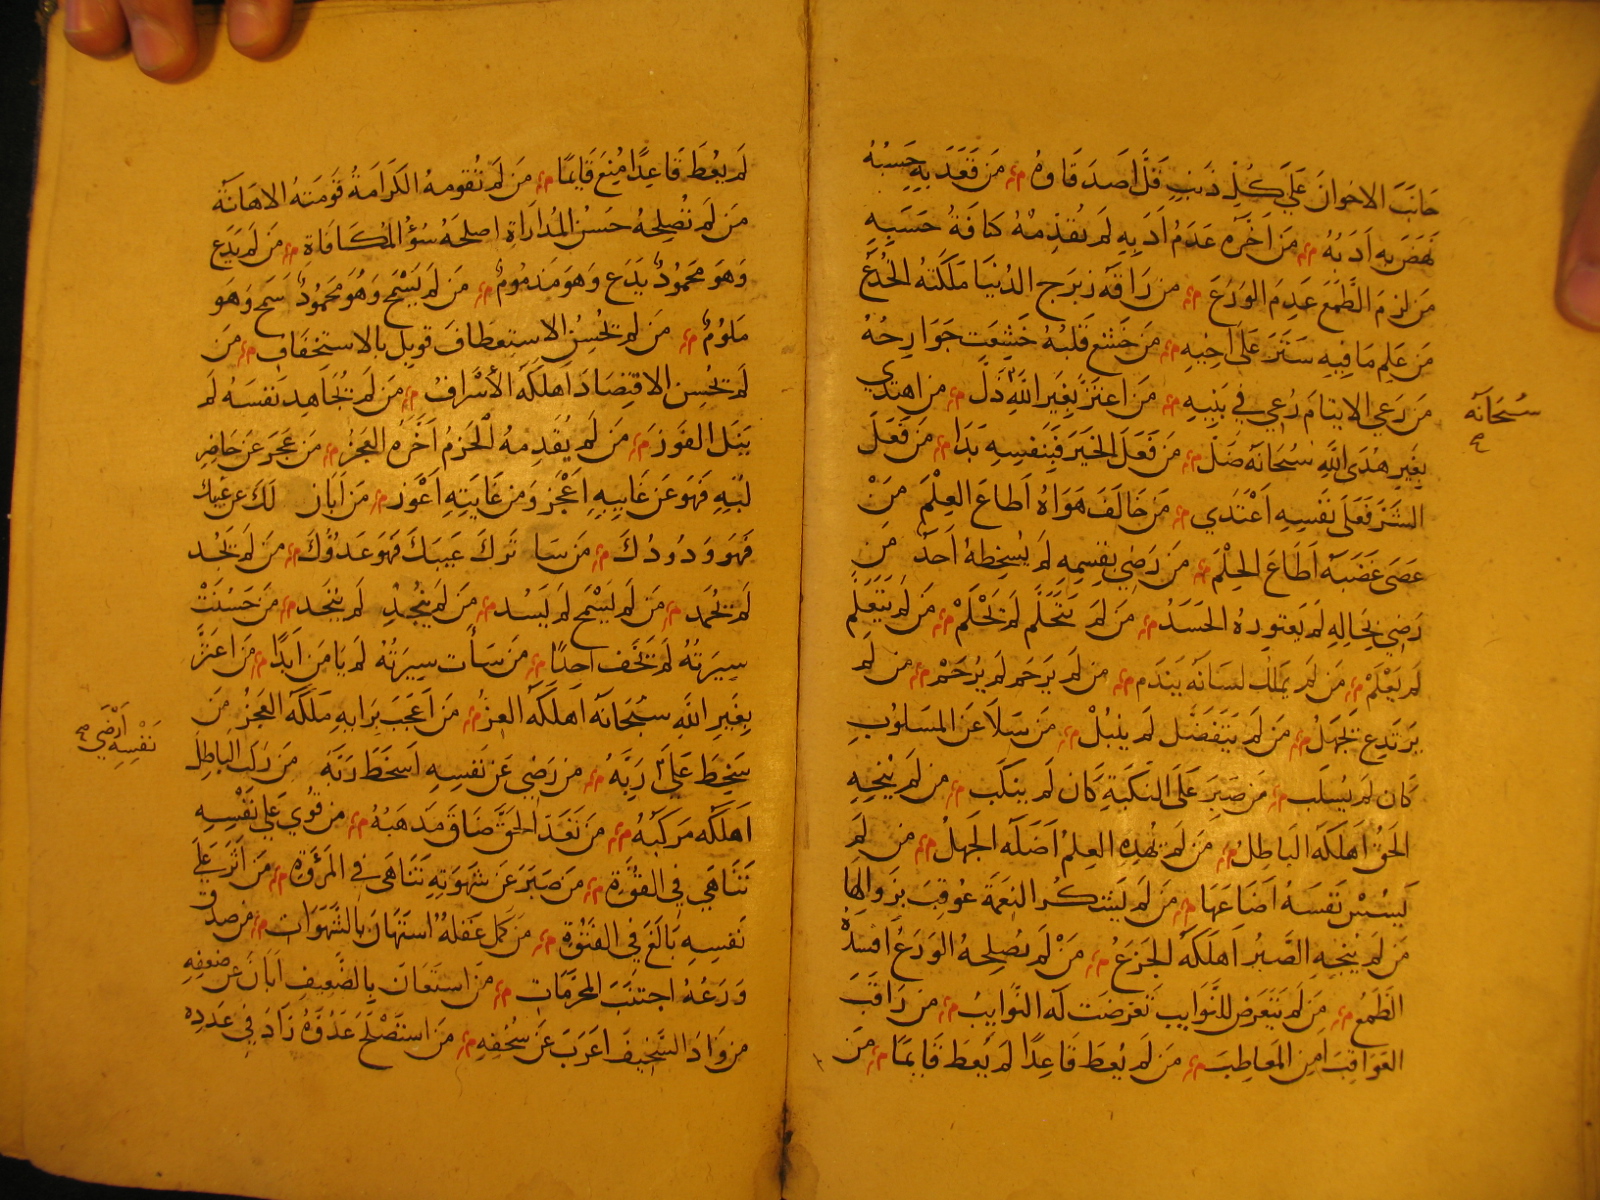 جانب الاخوان على كل ذنب قل اصدقاوه من قعد به حسبه
نهض به ادبه من اخره عدم ادبه لم تقدمه كثافة حسبه
من لزم الطمع عدم الورع من راقه زبرج الدنيا ملكته الخدع
من علم ما فيه ستر على اخيه من خشع قلبه خشعت جوارحه
من رعي الايتام رعي في بنيه من اعتز بغير الله ذل من اهتدي
سبحانه
بغير هدى الله سبحانه ضل من فعل الخير فبنفسه بدا من فعل
الشر فعلى نفسه اعتدي من خالف هواه اطاع العلم من
عصى غضبه اطاع الحلم من رضي بقسمه لم يسخطه احد من
رضي بحاله لم يعتوره الحسد من لم يتحلم لم يحلم من لم يتعلم
لم يعلم من لم يملك لسانه يندم من لم يرحم لم يرحم من لم
يرتدع يجهل من لم يتفضل لم ينبل من سلا عن المسلوب
كان لم يسلب من صبر على النكبة كان لم ينكب من لم ينجه
الحق اهلكه الباطل من لم يهده العلم اضله الجهل من لم
يسس نفسه اضاعها من لم يشكر النعمة عوقب بزوالها
من لم ينجه الصبر اهلكه الجزع من لم يصلحه الورع افسده
الطمع من لم يتعرض للنوايب تعرضت له النوايب من راقب
العواقب امن المعاطب من لم يعط قاعدا لم يعط قايما من
لم يعط قاعدا منع قايما من لم تقومه الكرامة قومته الاهانة
من لم تصلحه حسن المداراة اصلحه سوء المكافاة من لم يدع
وهو محمود يدع وهو مذموم من لم يسمح وهو محمود سمح وهو
ملوم من لم يحسن الاستعطاف قوبل بالاستخفاف من
لم يحسن الاقتصاد اهلكه الاسراف من لم يجاهد نفسه لم
ينل الفوز من لم يقدمه الحزم اخره العجز من عجز عن حاضر
لبه فهو عن غايبه اعجز ومن غايته اعوز من ابان لك عن عيبك
فهو ودودك من ساترك عيبك فهو عدوك من لم يجد
لم يحمد من لم يسمح لم يسد من لم ينجد لم ينجد من حسنت
سيرته لم يخف احدا من سأت سيرته لم يامن ابدا من اعتز
بغير الله سبحانه اهلكه العز من اعجب برايه ملكه العجز من
نفسه ارضي
سخط على ربه من رضي عن نفسه اسخط ربه من ركب الباطل
اهلكه مركبه من تعدى الحق ضاق مذهبه من قوي على نفسه
تناهي في القوة من صبر عن شهوته تناهى في المروة من اثر على
نفسه بالغ في الفتوة من كمل عقله استهان بالشهوات من صدق
ورعه اجتنب المحرمات من استعان بالضعيف ابان عن ضعفه
من واد السخيف اعرب عن سخفه من استصلح عدوه زاد في عدده